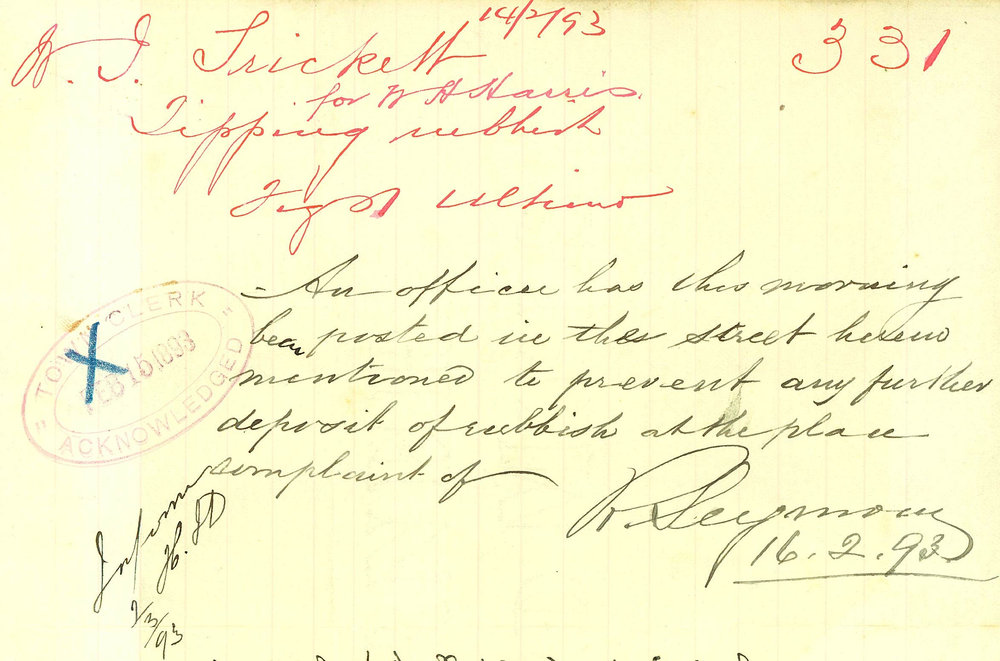 14/2/93
W. J. Trickett 331
for W H Harris
Tipping rubbish
Fig St Ultimo
An officer has this morning
been posted in the street herein
mentioned to prevent any further
deposit of rubbish at the place
complaint of
R. Seymour
16.2.93
TOWN CLERK
FEB 15 1893
ACKNOWLEDGED
X
Inform
2/3/93